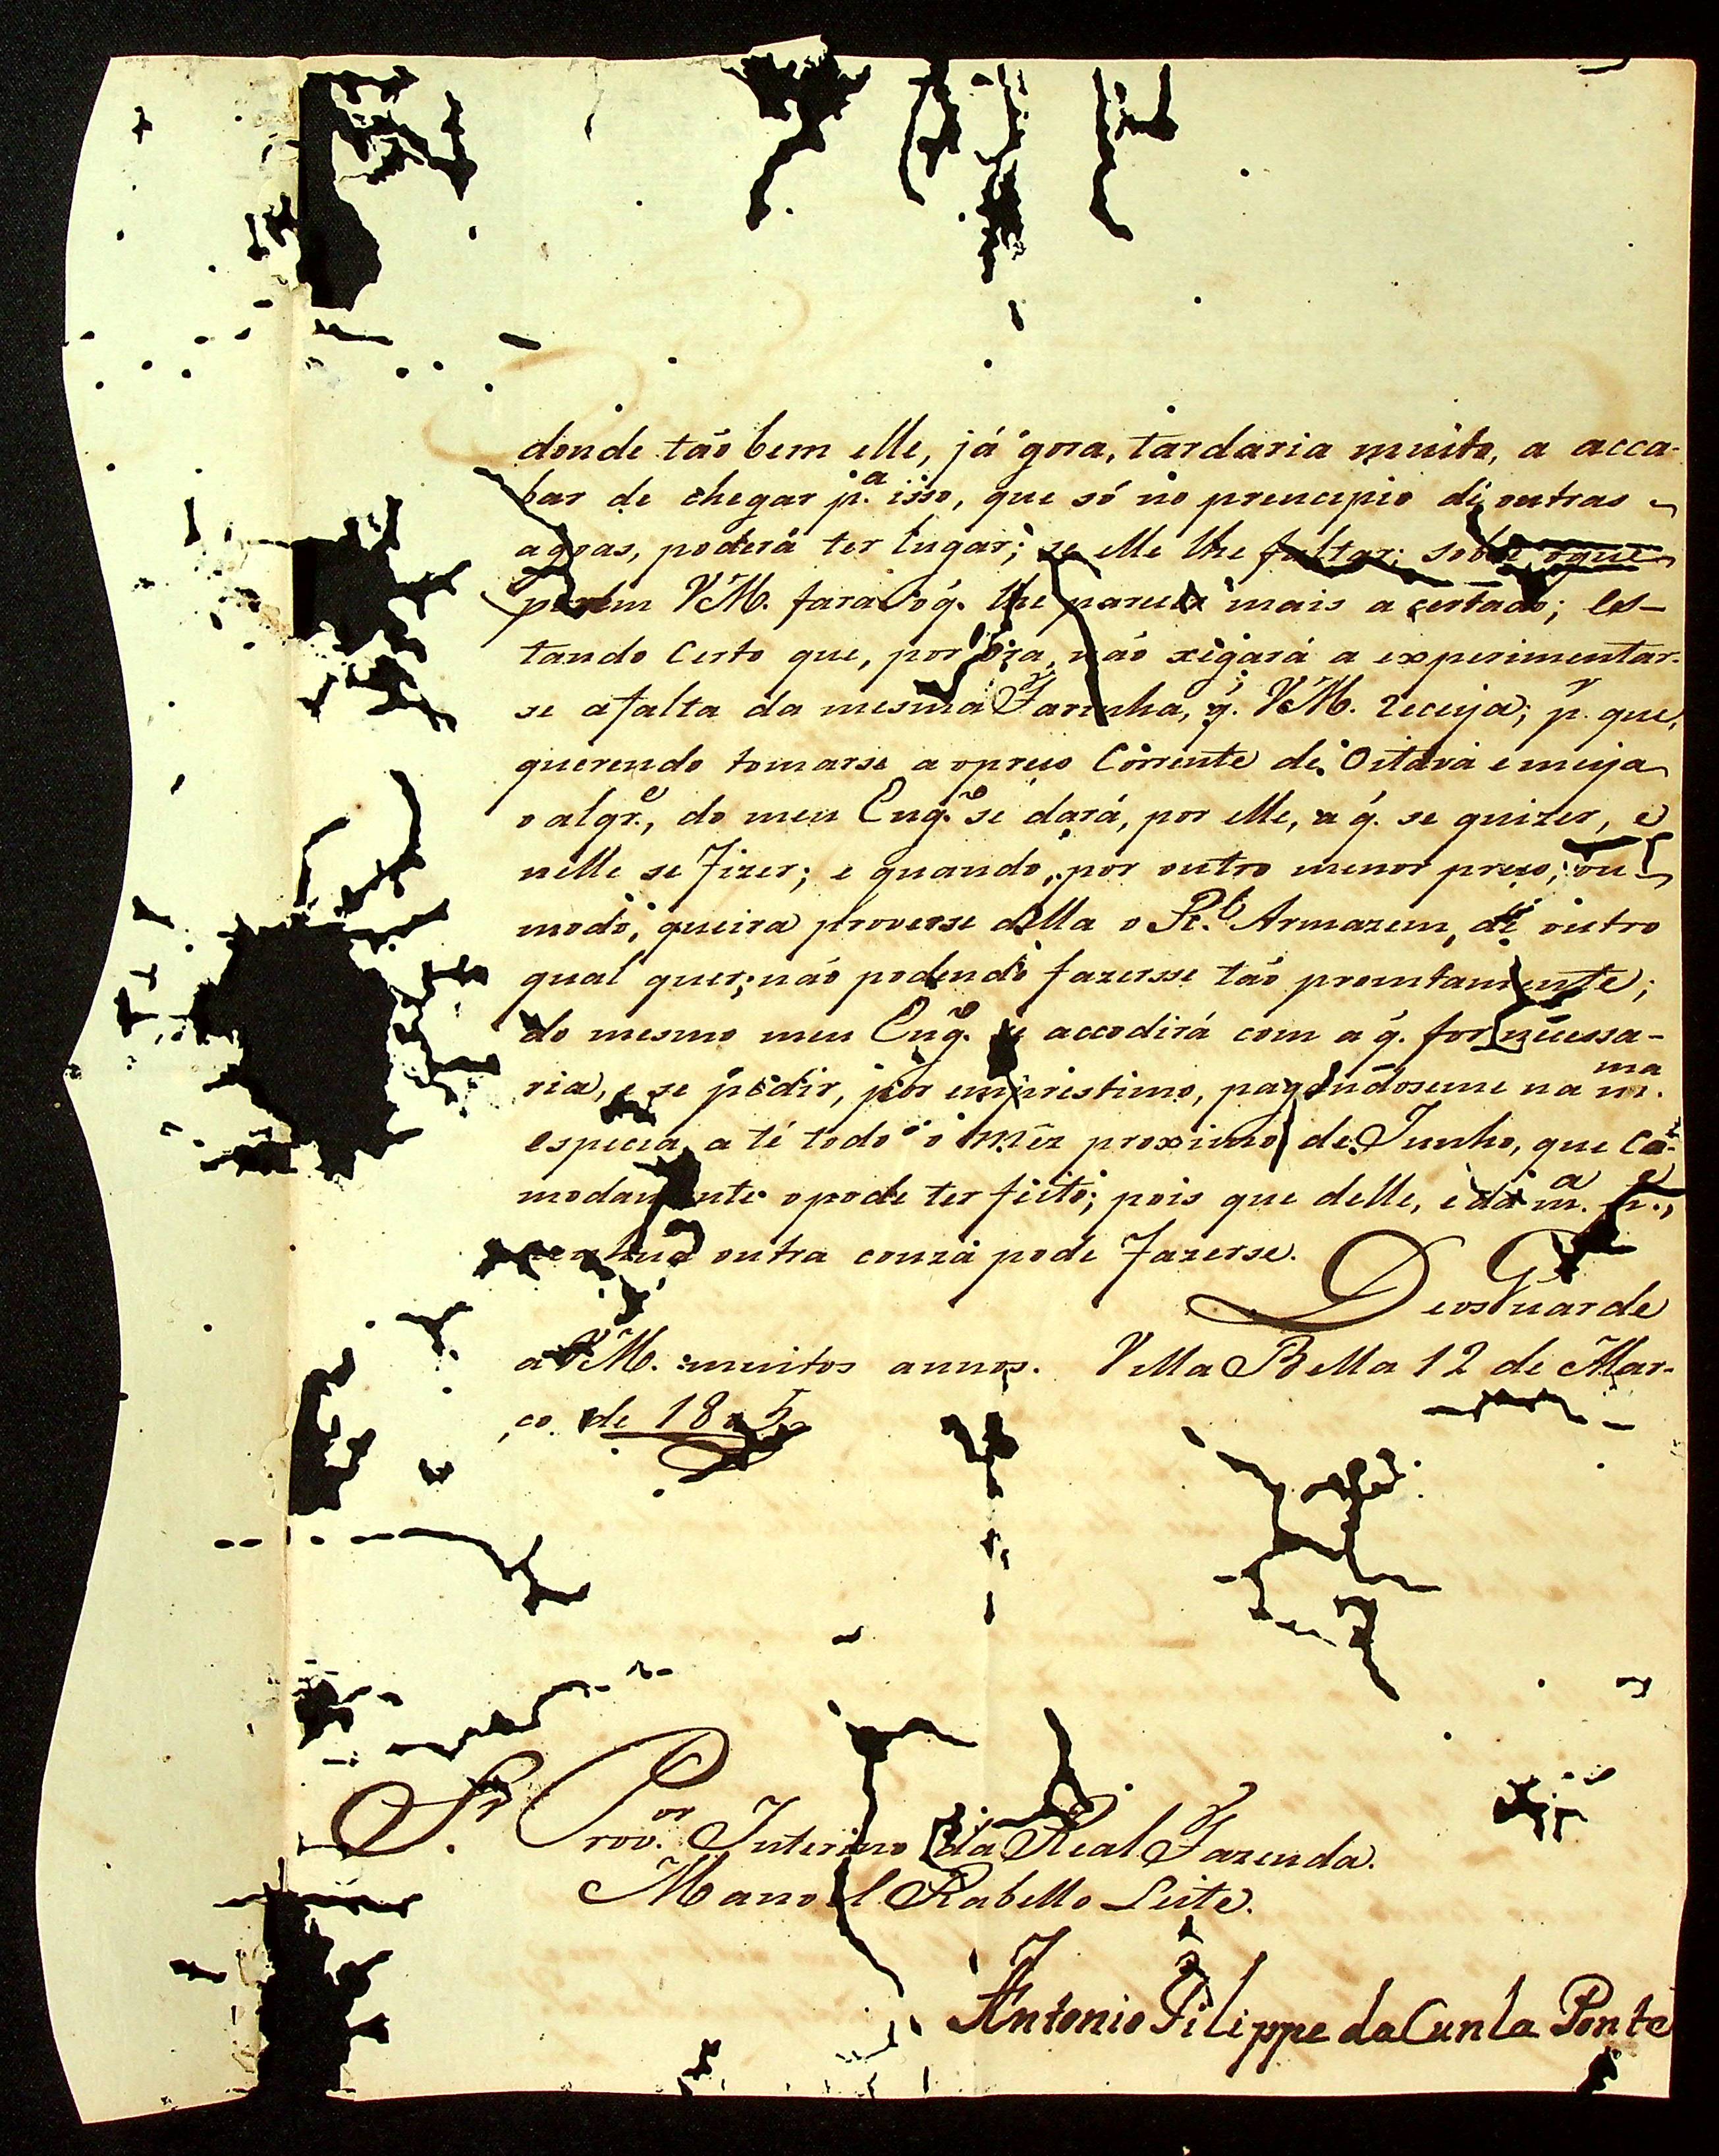 donde tão bem elle, já gora, tardaria muito, a acca-
bar de chegar p.ª isso, que só no prencipio de outras
agoas, poderá ter lugar; se elle lhe faltar; sobre oque
porem VM. fara oq̃. lhe pareça mais a certado; Es-
tando Certo que, por ora, não xegará a experimentar-
se afalta da mesma Farinha, q̃. VM. Receija; p. que,
querendo tomarse a opreço Corrente de Oitava emeija
oalqr.e, do meu Eng.o se dará, por elle, a q̃. se quizer, e
nelle se Fizer; e quando, por outro menor preço, ou
modo, queira proverse della o R.l Armazem, de outro
qual quer; não podendo fazersse tão promtamente;
do mesmo meu Eng.o se accodirá com a q̃. for necessa-
ria, e se pedir, por emprestimo, pagandoseme na m.ma
especia, a té todo o Mêz proximo de Junho, que Co-
modamente opode ter feito; pois que delle, e da m.a
nenhuã outra couza pode Fazerse.
Deos Guarde
a VM. muitos annos. Villa Bella 12 de Mar-
ço de 1805
S.r Prov.or Interino da Real Fazenda.
Manoel Rabello Leite.
Antonio Filippe da Cunha Ponte